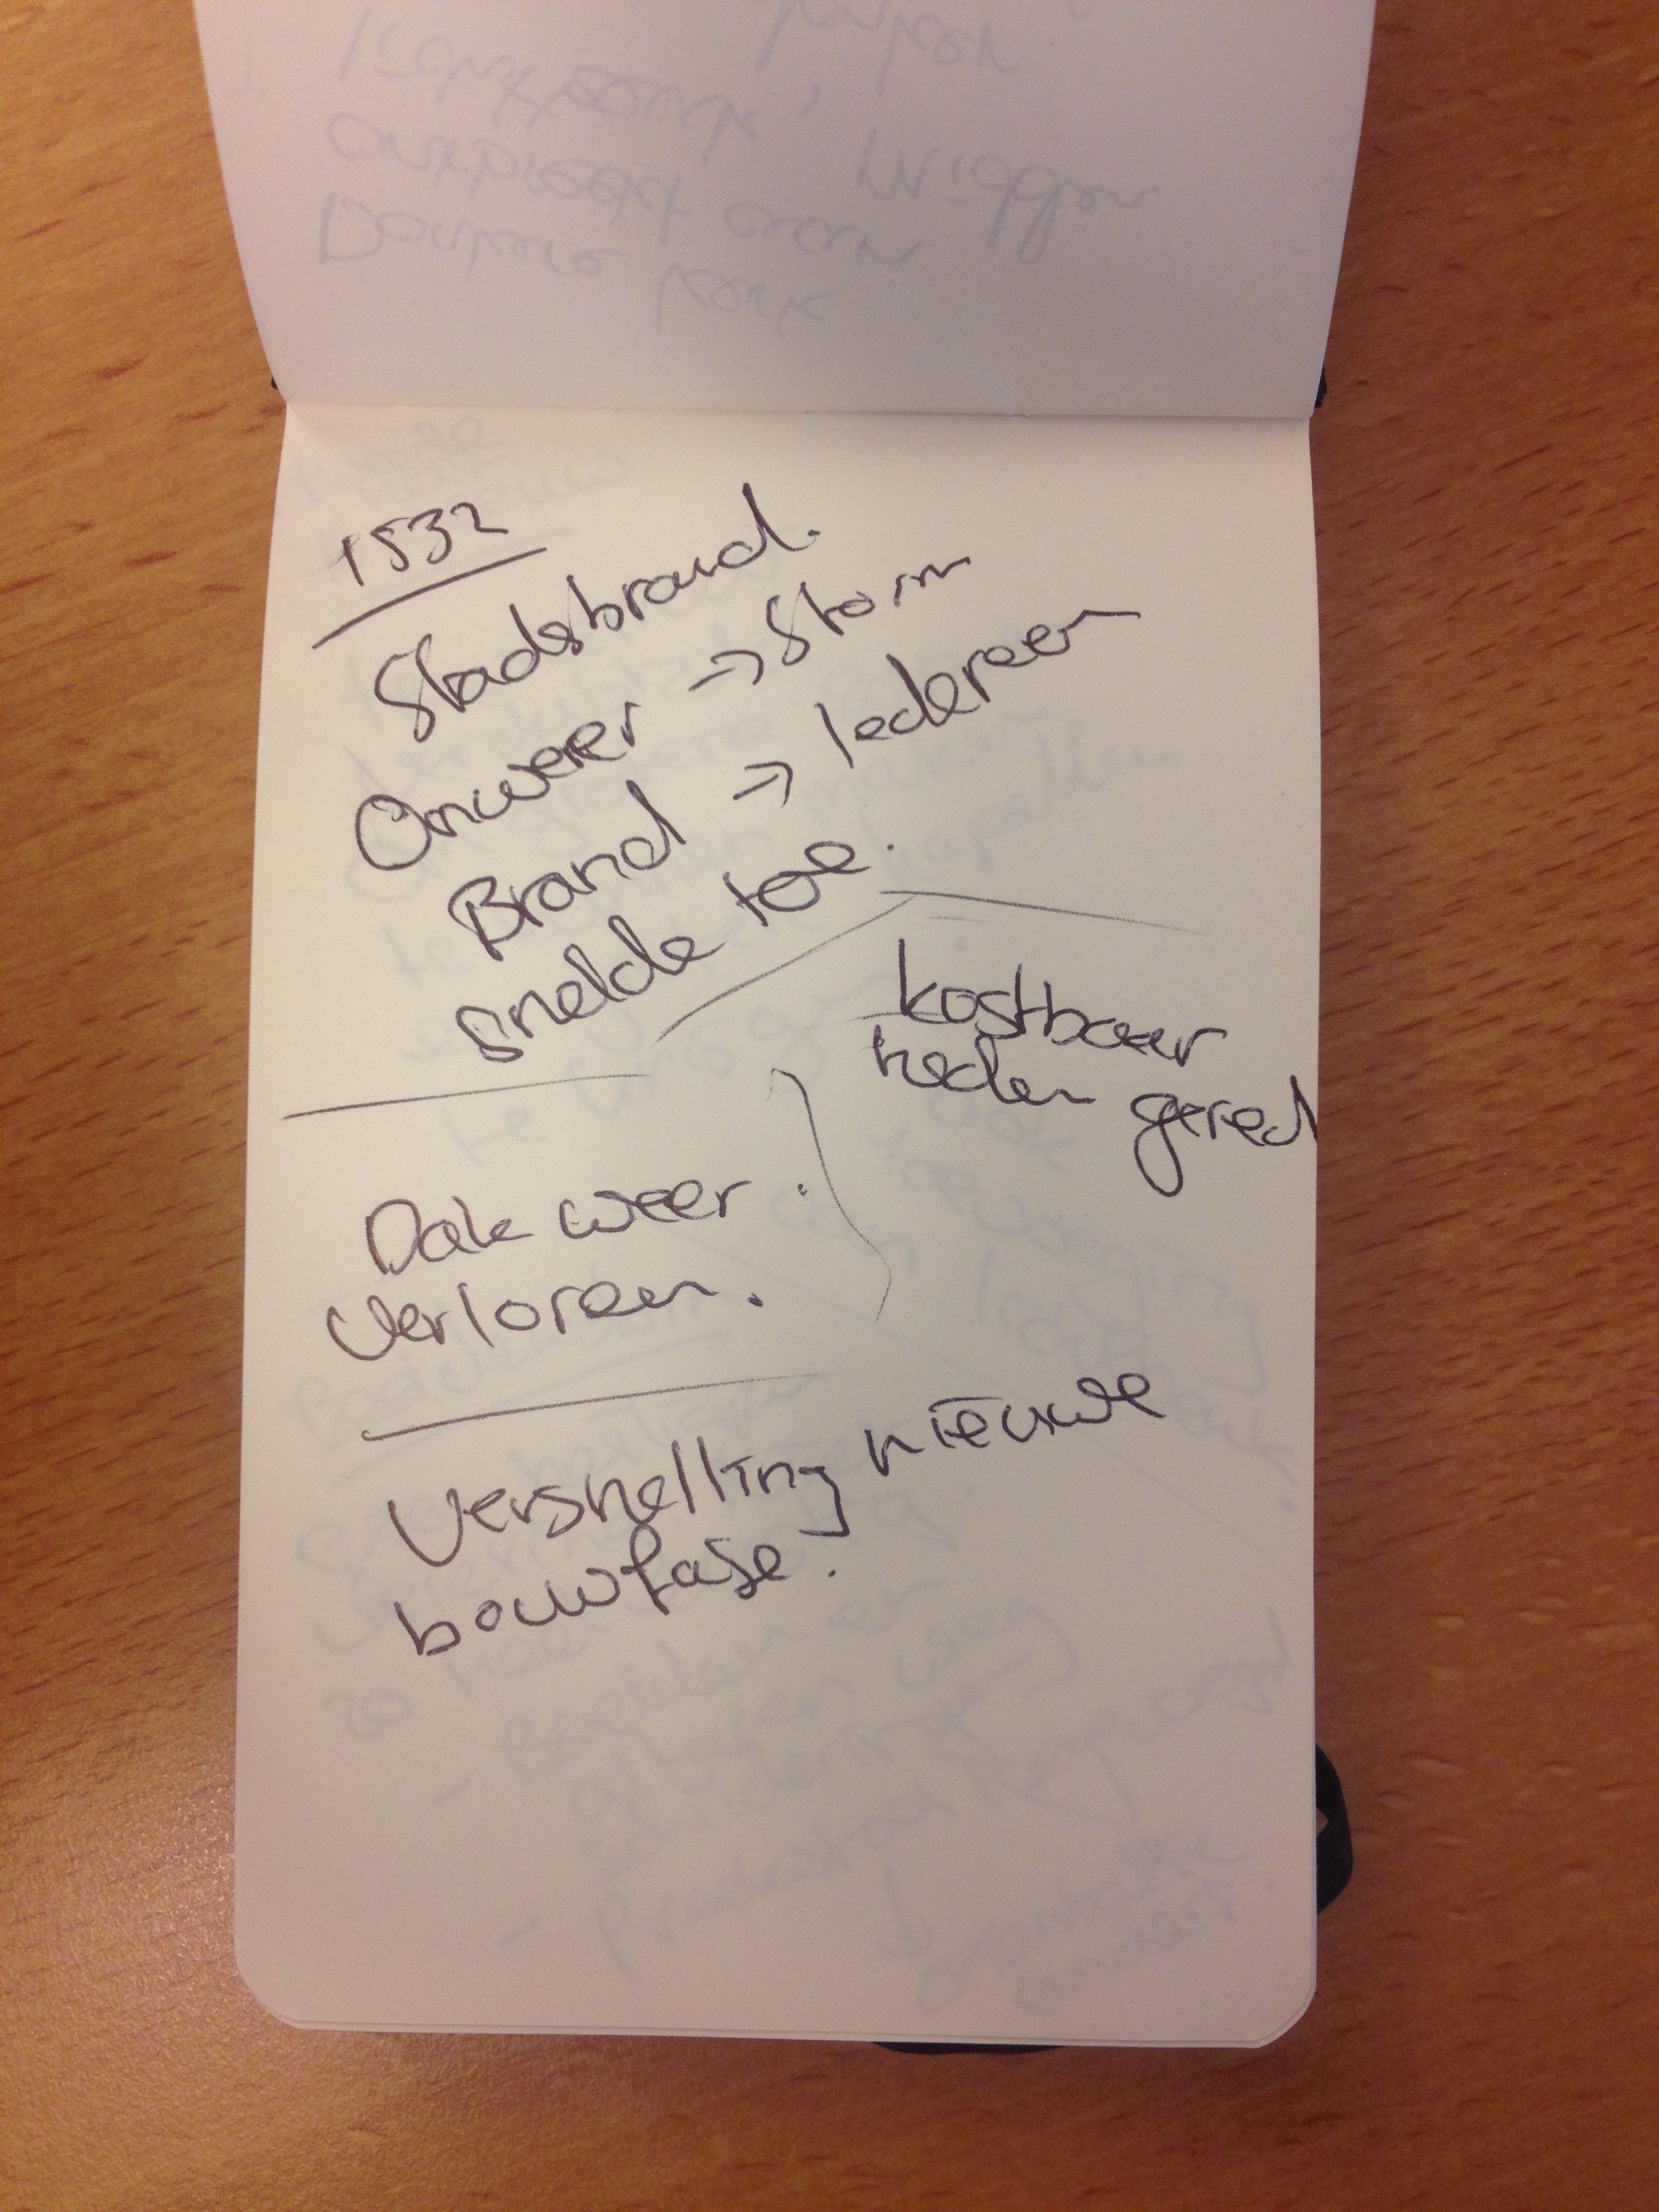 1532
Stadsbrand.
Onweer → Storm
Brand → Iedereen
snelde toe.
kostbaar
heden gered
Dak weer.
verloren.
Versnelling nieuwe
bouwfase.